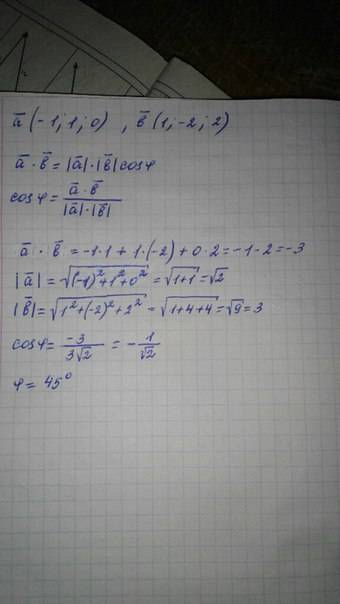 a̅ (-1; 1; 0) , b̅ (1; -2; 2)
a̅ · b̅ = |a̅| · |b̅| cosφ
cosφ = (a̅ · b̅)/(|a̅| · |b̅|)
a̅ · b̅ = -1·1 + 1·(-2) + 0·2 = -1 - 2 = -3
|a̅| = √((-1)² + 1² + 0²) = √(1+1) = √2
|b̅| = √(1² + (-2)² + 2²) = √(1+4+4) = √9 = 3
cosφ = -3/(3√2) = -1/√2
φ = 45°